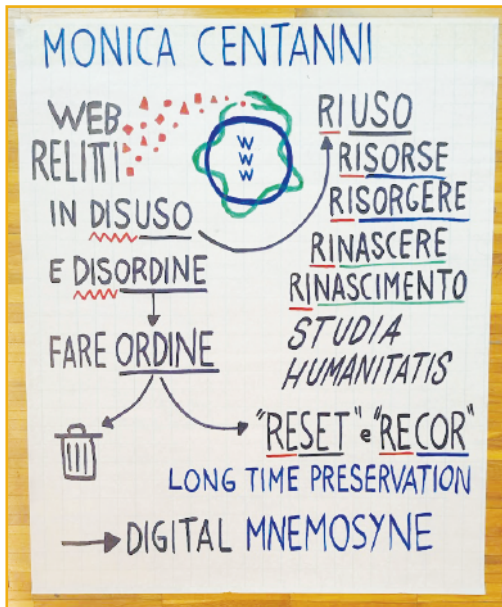 MONICA CENTANNI
WEB
RELITTI
IN DISUSO
E DISORDINE
FARE ORDINE
W
W
W
RIUSO
RISORSE
RISORGERE
RINASCERE
RINASCIMENTO
STUDIA
HUMANITATIS
"RESET" e "RECOR"
LONG TIME PRESERVATION
DIGITAL MNEMOSYNE